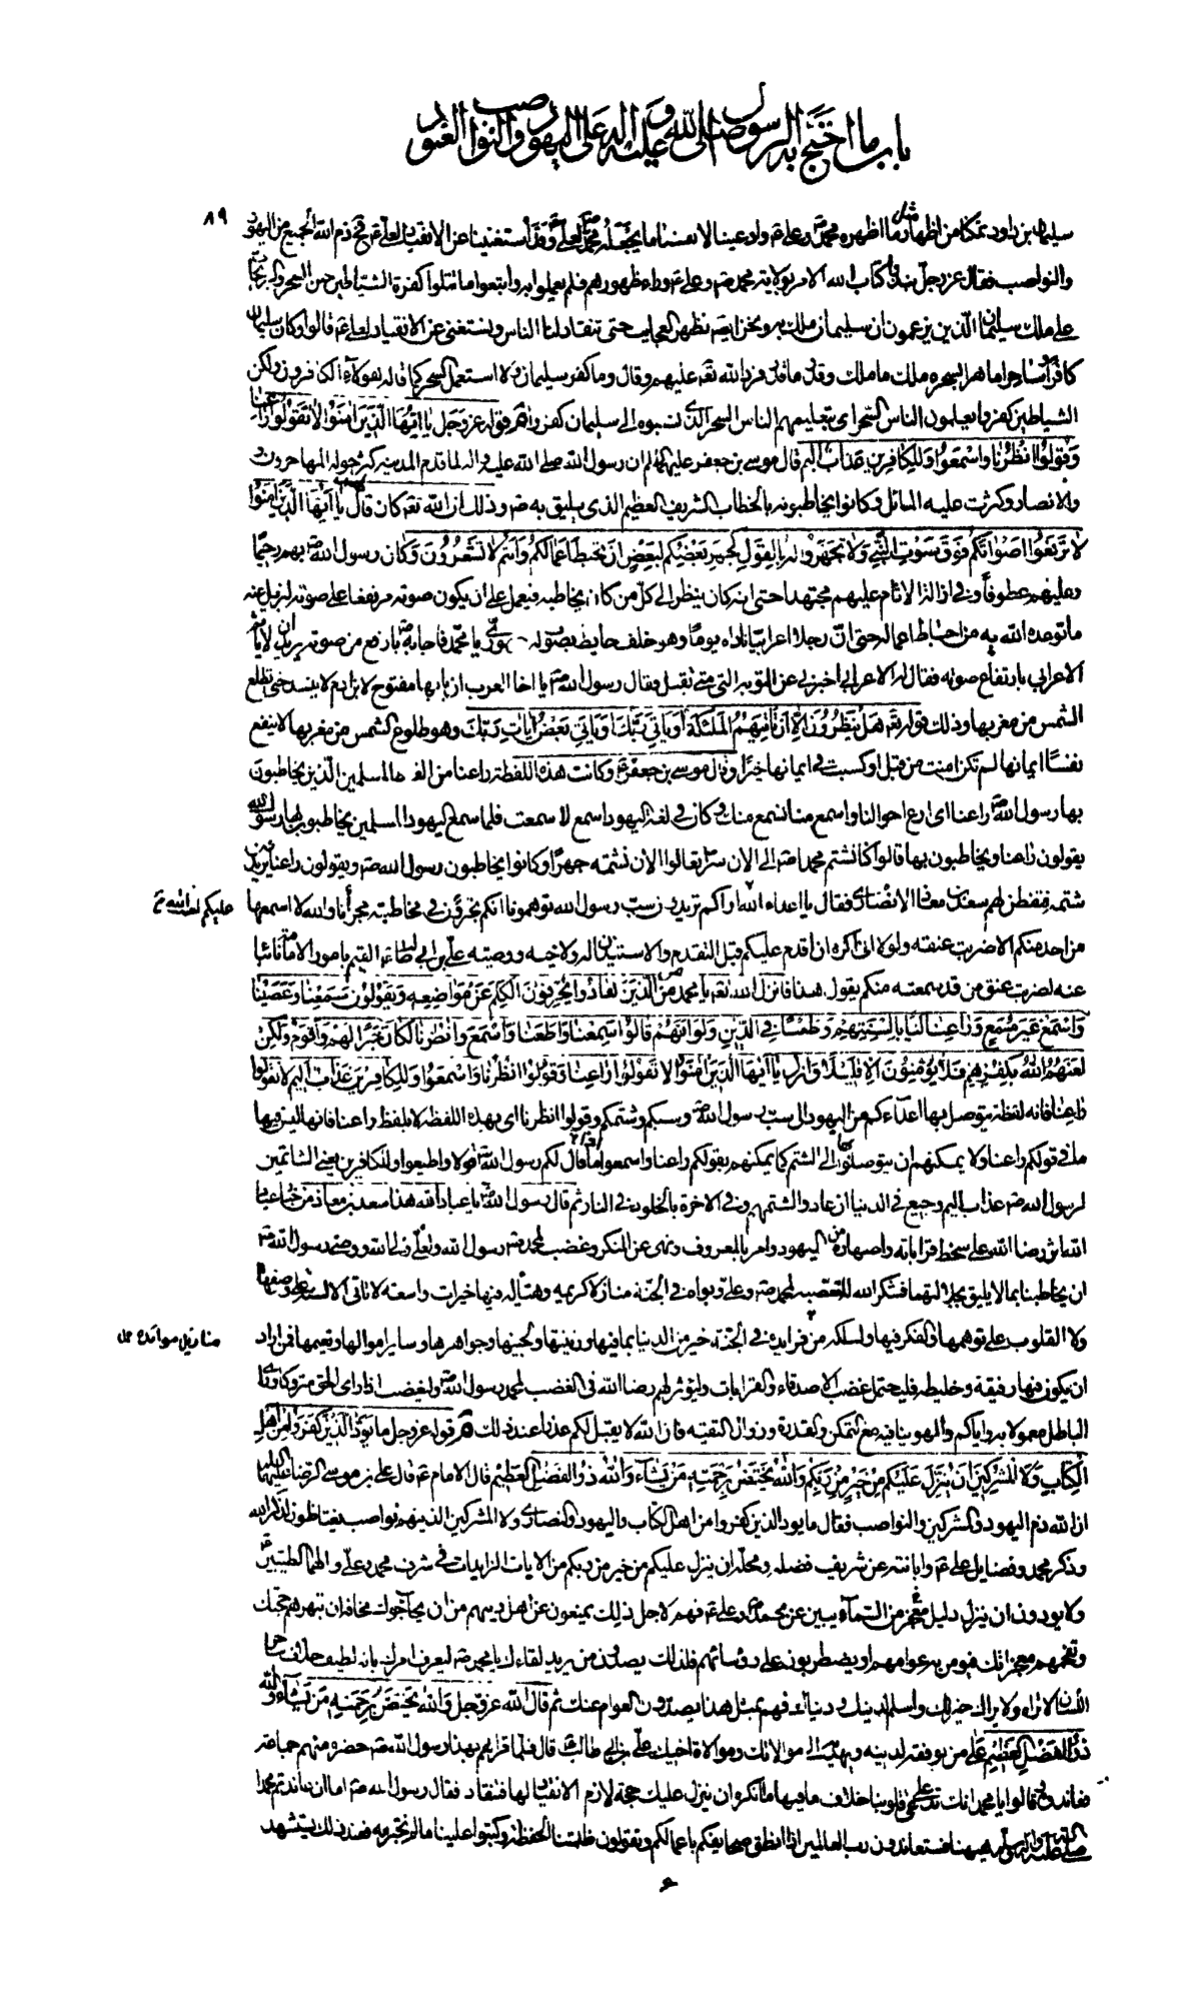 باب ما احتج به الرسول صلى الله عليه وآله على اليهود والنواصب
٨٩
سليمان بن داود تمكنا من اظهار مثل ما اظهره محمد وعلي وادعينا لانفسنا ما يجعله محمد لعلي وقد استغنينا عن الانقياد لعلي فح ذم الله الجميع من اليهود
والنواصب فقال عز وجل نبذوا كتاب الله الامر بولاية محمد ص وعلي ع وراء ظهورهم فلم يعملوا به واتبعوا ما تتلوا كفرة الشياطين من السحر والنيرنجات
على ملك سليمان الذين يزعمون ان سليمان ملك به ونحن ايضا به نظهر العجايب حتى تنقاد لنا الناس ونستغني عن الانقياد لعلي ع قالوا وكان سليمان
كافرا ساحرا ماهرا بسحره ملك ما ملك وقدر ما قدر فرد الله تع عليهم وقال وما كفر سليمان ولا استعمل السحر كما قاله هؤلاء الكافرون ولكن
الشياطين كفروا يعلمون الناس السحر اي بتعليمهم الناس السحر الذي نسبوه الى سليمان كفروا قوله عز وجل يا ايها الذين امنوا لا تقولوا راعنا
وقولوا انظرنا واسمعوا وللكافرين عذاب اليم قال موسى بن جعفر عليهما السلم ان رسول الله صلى الله عليه واله لما قدم المدينة كثر حوله المهاجرون
والانصار وكثرت عليه المسائل وكانوا يخاطبونه بالخطاب الشريف العظيم الذي يليق به ص وذلك ان الله تع كان قال يا ايها الذين امنوا
لا ترفعوا اصواتكم فوق صوت النبي ولا تجهروا له بالقول كجهر بعضكم لبعض ان تحبط اعمالكم وانتم لا تشعرون وكان رسول الله بهم رحيما
وعليهم عطوفا وفي ازالة الاثام عليهم مجتهدا حتى انه كان ينظر الى كل من كان يخاطبه فيعمل على ان يكون صوته مرتفعا على صوته ليزيل عنه
ما توعده الله به من احباط اعماله حتى ان رجلا اعرابيا ناداه يوما وهو خلف حايط بصوت جهوري يا محمد فاجابه بارفع من صوته يريد ان لا ياثم
الاعرابي بارتفاع صوته فقال له الاعرابي اخبرني عن التوبة الى متى تقبل فقال رسول الله يا اخا العرب ان بابها مفتوح لابن ادم لا ينسد حتى تطلع
الشمس من مغربها وذلك قوله تع هل ينظرون الا ان تاتيهم الملئكة او ياتي ربك او ياتي بعض ايات ربك وهو طلوع الشمس من مغربها لا ينفع
نفسا ايمانها لم تكن امنت من قبل او كسبت في ايمانها خيرا وقال موسى بن جعفر وكانت هذه اللفظة راعنا من الفاظ المسلمين الذين يخاطبون
بها رسول الله راعنا اي ارع احوالنا واسمع منا نسمع منك وكان في لغة اليهود اسمع لا سمعت فلما سمع اليهود المسلمين يخاطبون بها رسول الله
يقولون راعنا ويخاطبون بها قالوا كنا نشتم محمدا ص الى الان سرا تعالوا الان نشتمه جهرا وكانوا يخاطبون رسول الله ص ويقولون راعنا يريدون
شتمه فتفطن لهم سعد بن معاذ الانصاري فقال يا اعداء الله اراكم تريدون سب رسول الله توهمونا انكم تجرون في مخاطبته مجرانا والله لا اسمعها
عليكم لعنة الله
من احد منكم الا ضربت عنقه ولولا اني اكره ان اقدم عليكم قبل التقدم والاستيذان له ولاخيه ووصيه علي بن ابي طالب القيم بامور الامة نائبا
عنه لضربت عنق من قد سمعته منكم يقول هذا فانزل الله تع يا محمد من الذين هادوا يحرفون الكلم عن مواضعه ويقولون سمعنا وعصينا
واسمع غير مسمع وراعنا ليا بالسنتهم وطعنا في الدين ولو انهم قالوا سمعنا واطعنا واسمع وانظرنا لكان خيرا لهم واقوم ولكن
لعنهم الله بكفرهم فلا يؤمنون الا قليلا وانزل يا ايها الذين امنوا لا تقولوا راعنا وقولوا انظرنا واسمعوا وللكافرين عذاب اليم لا تقولوا
راعنا فانه لفظة يتوصل بها اعداءكم من اليهود الى سب رسول الله وسبكم وشتمكم وقولوا انظرنا اي بهذه اللفظة لا بلفظ راعنا فانها ليس فيها
ما في قولكم راعنا ولا يمكنهم ان يتوصلوا بها الى الشتم كما يمكنهم بقولكم راعنا واسمعوا اذا قال لكم رسول الله قولا واطيعوا وللكافرين يعني الشاتمين
لرسول الله ص عذاب اليم وجيع في الدنيا ان عادوا لشتمهم وفي الاخرة بالخلود في النار ثم قال رسول الله يا عباد الله هذا سعد بن معاذ من خيار عباد
الله اثر رضا الله على سخط قراباته واصهاره من اليهود وامر بالمعروف ونهى عن المنكر وغضب لمحمد ص رسول الله ولعلي ولي الله ووصي رسول الله ص
ان يخاطبنا بما لا يليق بجلالتهما فشكر الله له لتعصبه لمحمد ص وعلي وبواه في الجنة منازل كريمة وهيأ له فيها خيرات واسعة لا تاتي الالسن على وصفها
ولا القلوب على توهمها والفكر فيها ولسلكة من مناديل موائده في الجنة خير من الدنيا بما فيها وزينتها ولجينها وجواهرها وساير اموالها ونعيمها فمن اراد
مناديل موائده
ان يكون فيها رفيقه وخليطه فليحتمل غضب الاصدقاء والقرابات وليؤثر لهم رضا الله في الغضب لمحمد رسول الله وليغضب اذا راى الحق متروكا وراى
الباطل معمولا به واياكم والهوينا فيه مع التمكن والقدرة وزوال التقية فان الله لا يقبل لكم عذرا عند ذلك قوله عز وجل ما يود الذين كفروا من اهل
الكتاب ولا المشركين ان ينزل عليكم من خير من ربكم والله يختص برحمته من يشاء والله ذو الفضل العظيم قال الامام ع قال علي بن موسى الرضا عليهما السلم
ان الله ذم اليهود والمشركين والنواصب فقال ما يود الذين كفروا من اهل الكتاب واليهود والنصارى ولا المشركين الذين هم نواصب يغتاظون لذكر الله
وذكر محمد وفضايل علي ع وابانته عن شريف فضله ومحله ان ينزل عليكم من خير من ربكم من الايات الزايدات في شرف محمد وعلي والهما الطيبين
ولا يودون ان ينزل دليل معجز من السماء يبين عن محمد وعلي ع فهم لاجل ذلك يمنعون عن اهل دينهم من ان يحاجوك مخافة ان تبهرهم حجتك
وتفحمهم معجزاتك فيؤمن بك عوامهم او يضطربون على رؤسائهم فلذلك يصدون من يريد لقاءك يا محمد ص ليعرف امرك بانه لطيف خلاق ساحر
اللسان لا تراه ولا يراك خير لك واسلم لدينك ودنياك فهم بمثل هذا يصدون العوام عنك ثم قال الله عز وجل والله يختص برحمته من يشاء والله
ذو الفضل العظيم على من يوفقه لدينه ويهديه الى موالاتك وموالاة اخيك علي بن ابي طالب قال فلما قرعهم بهذا رسول الله ص حضره منهم جماعة
فعاندوه وقالوا يا محمد انك تدعي على قلوبنا خلاف ما فيها ما نكره ان ينزل عليك حجة لازم الانقياد لها فننقاد فقال رسول الله ص اما ان عاندتم محمدا
صلى الله عليه وآله ههنا فستعاندون رب العالمين اذا انطق صحايفكم باعمالكم وتقولون ظلمتنا الحفظة وكتبوا علينا ما لم نجترمه فعند ذلك يستشهد